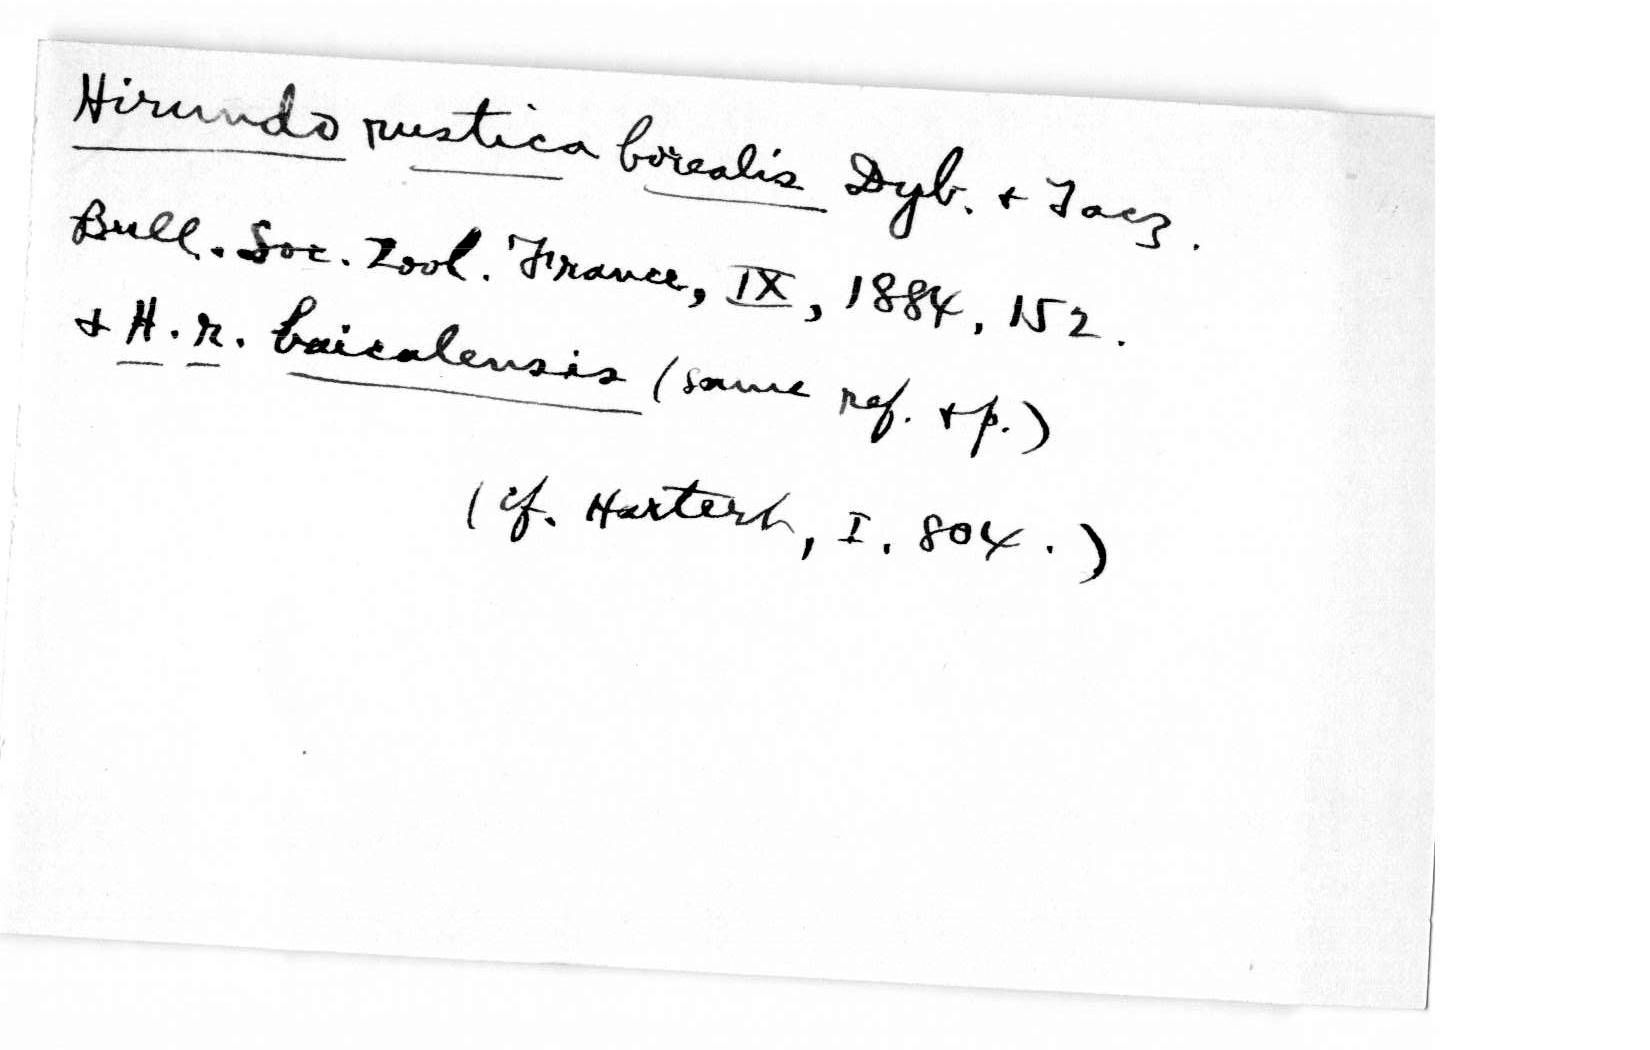 Hirundo rustica borealis Dyb. + Tacz.
Bull. Soc. Zool. France, IX, 1884, 152.
+ H. r. baicalensis (same ref. + p.)
(cf. Hartert, I. 804.)